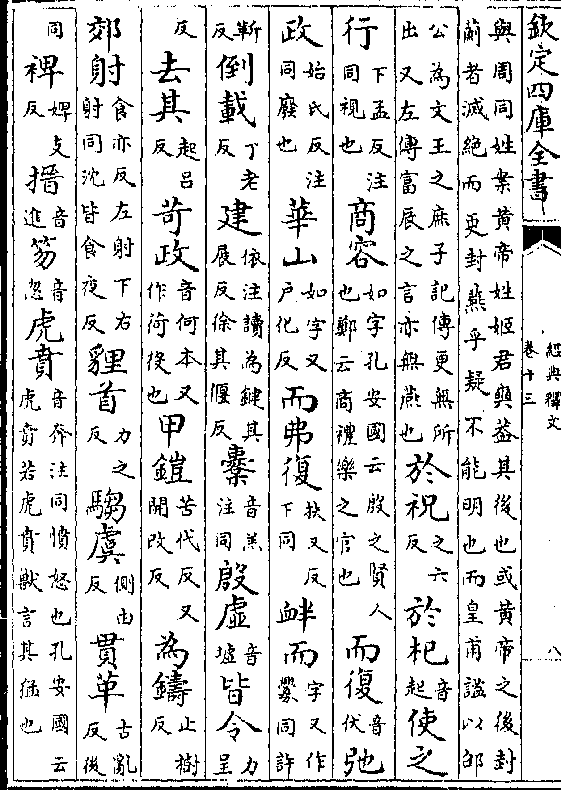 欽定四庫全書
經典釋文
卷十三
八
與周同姓案黃帝姓姬君奭葢其後也或黃帝之後封
薊者滅絕而更封燕乎疑不能明也而皇甫謐以邵
公為文王之庶子記傳更無所出又左傳富辰之言亦無燕也於祝之六反於杞音起使之
行下孟反注同視也商容如字孔安國云殷之賢人也鄭云商禮樂之官也而復音伏弛
政始氏反注同廢也華山如字又戶化反而弗復扶又反下同衅而字又作釁同許
靳反倒載丁老反建依注讀為鍵其展反徐其偃反櫜音羔注同殷虛音墟皆令力呈
反去其起呂反苛政音何本又作荷役也甲鎧苦代反又開改反為鑄止樹反
郊射食亦反左射下右射同沈皆食夜反貍首力之反騶虞側由反貫革古亂反後
同裨婢支反搢音進笏音忽虎賁音奔注同憤怒也孔安國云虎賁若虎賁獸言其猛也